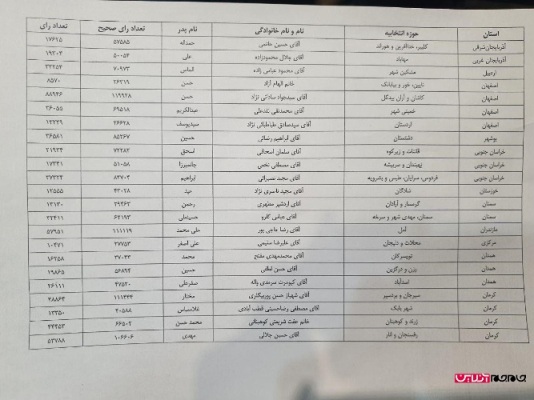 استان حوزه انتخابیه نام و نام خانوادگی نام پدر تعداد رای صحیح تعداد رای
آذربایجان شرقی کلیبر، خداآفرین و هوراند آقای حسین حاتمی حمداله ۵۷۵۸۵ ۱۷۶۲۵
آذربایجان غربی مهاباد آقای جلال محمودزاده علی
اردبیل مشکین شهر آقای محمود عباس زاده الماس ۷۰۹۷۳
اصفهان نایین، خور و بیابانک خانم الهام آزاد حسن ۲۶۲۱۹ ۸۵۷۰
اصفهان کاشان و آران بیدگل آقای سیدجواد ساداتی نژاد حسن
اصفهان خمینی شهر آقای محمدتقی نقدعلی عبدالکریم ۶۹۵۱۸ ۲۶۰۵۵
اصفهان اردستان آقای سیدصادق طباطبائی نژاد سیدیوسف
بوشهر دشتستان آقای ابراهیم رضائی حسن ۸۵۲۶۷ ۳۶۵۶۱
خراسان جنوبی قائنات و زیرکوه آقای سلمان اسحاقی اسحق
خراسان جنوبی نهبندان و سربیشه آقای مصطفی نخعی
خراسان جنوبی فردوس، سرایان، طبس و بشرویه آقای محمد نصیرائی ابراهیم
خوزستان شادگان آقای مجید ناصری نژاد ۱۲۵۵۵
سمنان گرمسار و آرادان آقای اردشیر مطهری رحمن
سمنان سمنان، مهدی شهر و سرخه آقای عباس گلرو حسینعلی
مازندران آمل آقای رضا حاجی پور علی محمد ۱۱۱۱۱۹ ۵۷۹۵۱
مرکزی محلات و دلیجان آقای علیرضا سلیمی علی اصغر ۲۷۷۵۳ ۱۰۴۷۱
همدان تویسرکان آقای محمدمهدی مفتح محمد ۱۶۲۵۸
همدان رزن و درگزین آقای حسن لطفی حسین ۵۶۸۹۴ ۱۹۸۶۵
همدان اسدآباد آقای کیومرث سرمدی واله صفرعلی ۴۷۵۲۰ ۲۶۱۱۱
کرمان سیرجان و بردسیر آقای شهباز حسن پوربیگلری مختار ۲۸۸۶۳
کرمان شهر بابک آقای مصطفی رضاحسینی قطب آبادی غلامعباس ۴۰۵۸۸ ۱۳۳۵۰
کرمان زرند و کوهبنان خانم عفت شریعتی کوهبنانی محمد حسن
کرمان رفسنجان و انار آقای حسین جلالی مهدی ۱۰۶۶۰۶ ۵۳۷۸۸
جام‌جم آنلاین